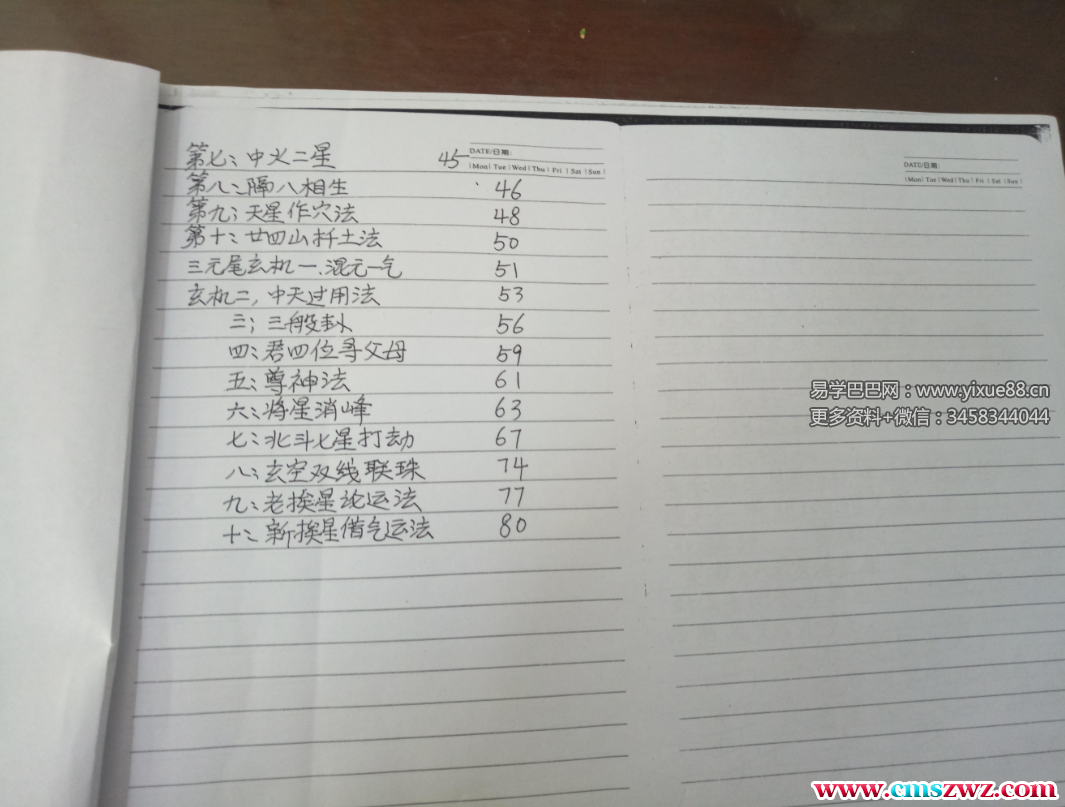 第七：中火二星 45
第八：隔八相生 46
第九：天星作穴法 48
第十：廿四山扦土法 50
三元尾玄机一.混元一气 51
玄机二，中天过用法 53
三；三般卦 56
四：君四位寻父母 59
五：尊神法 61
六：将星消峰 63
七：北斗七星打劫 67
八：玄空双线联珠 74
九：老挨星论运法 77
十：新挨星借气运法 80
DATE/日期:
Mon Tue Wed Thu Fri Sat Sun
DATE/日期:
Mon Tue Wed Thu Fri Sat Sun
易学巴巴网：www.yixue88.cn
更多资料+微信：3458344044
www.cmszwz.com